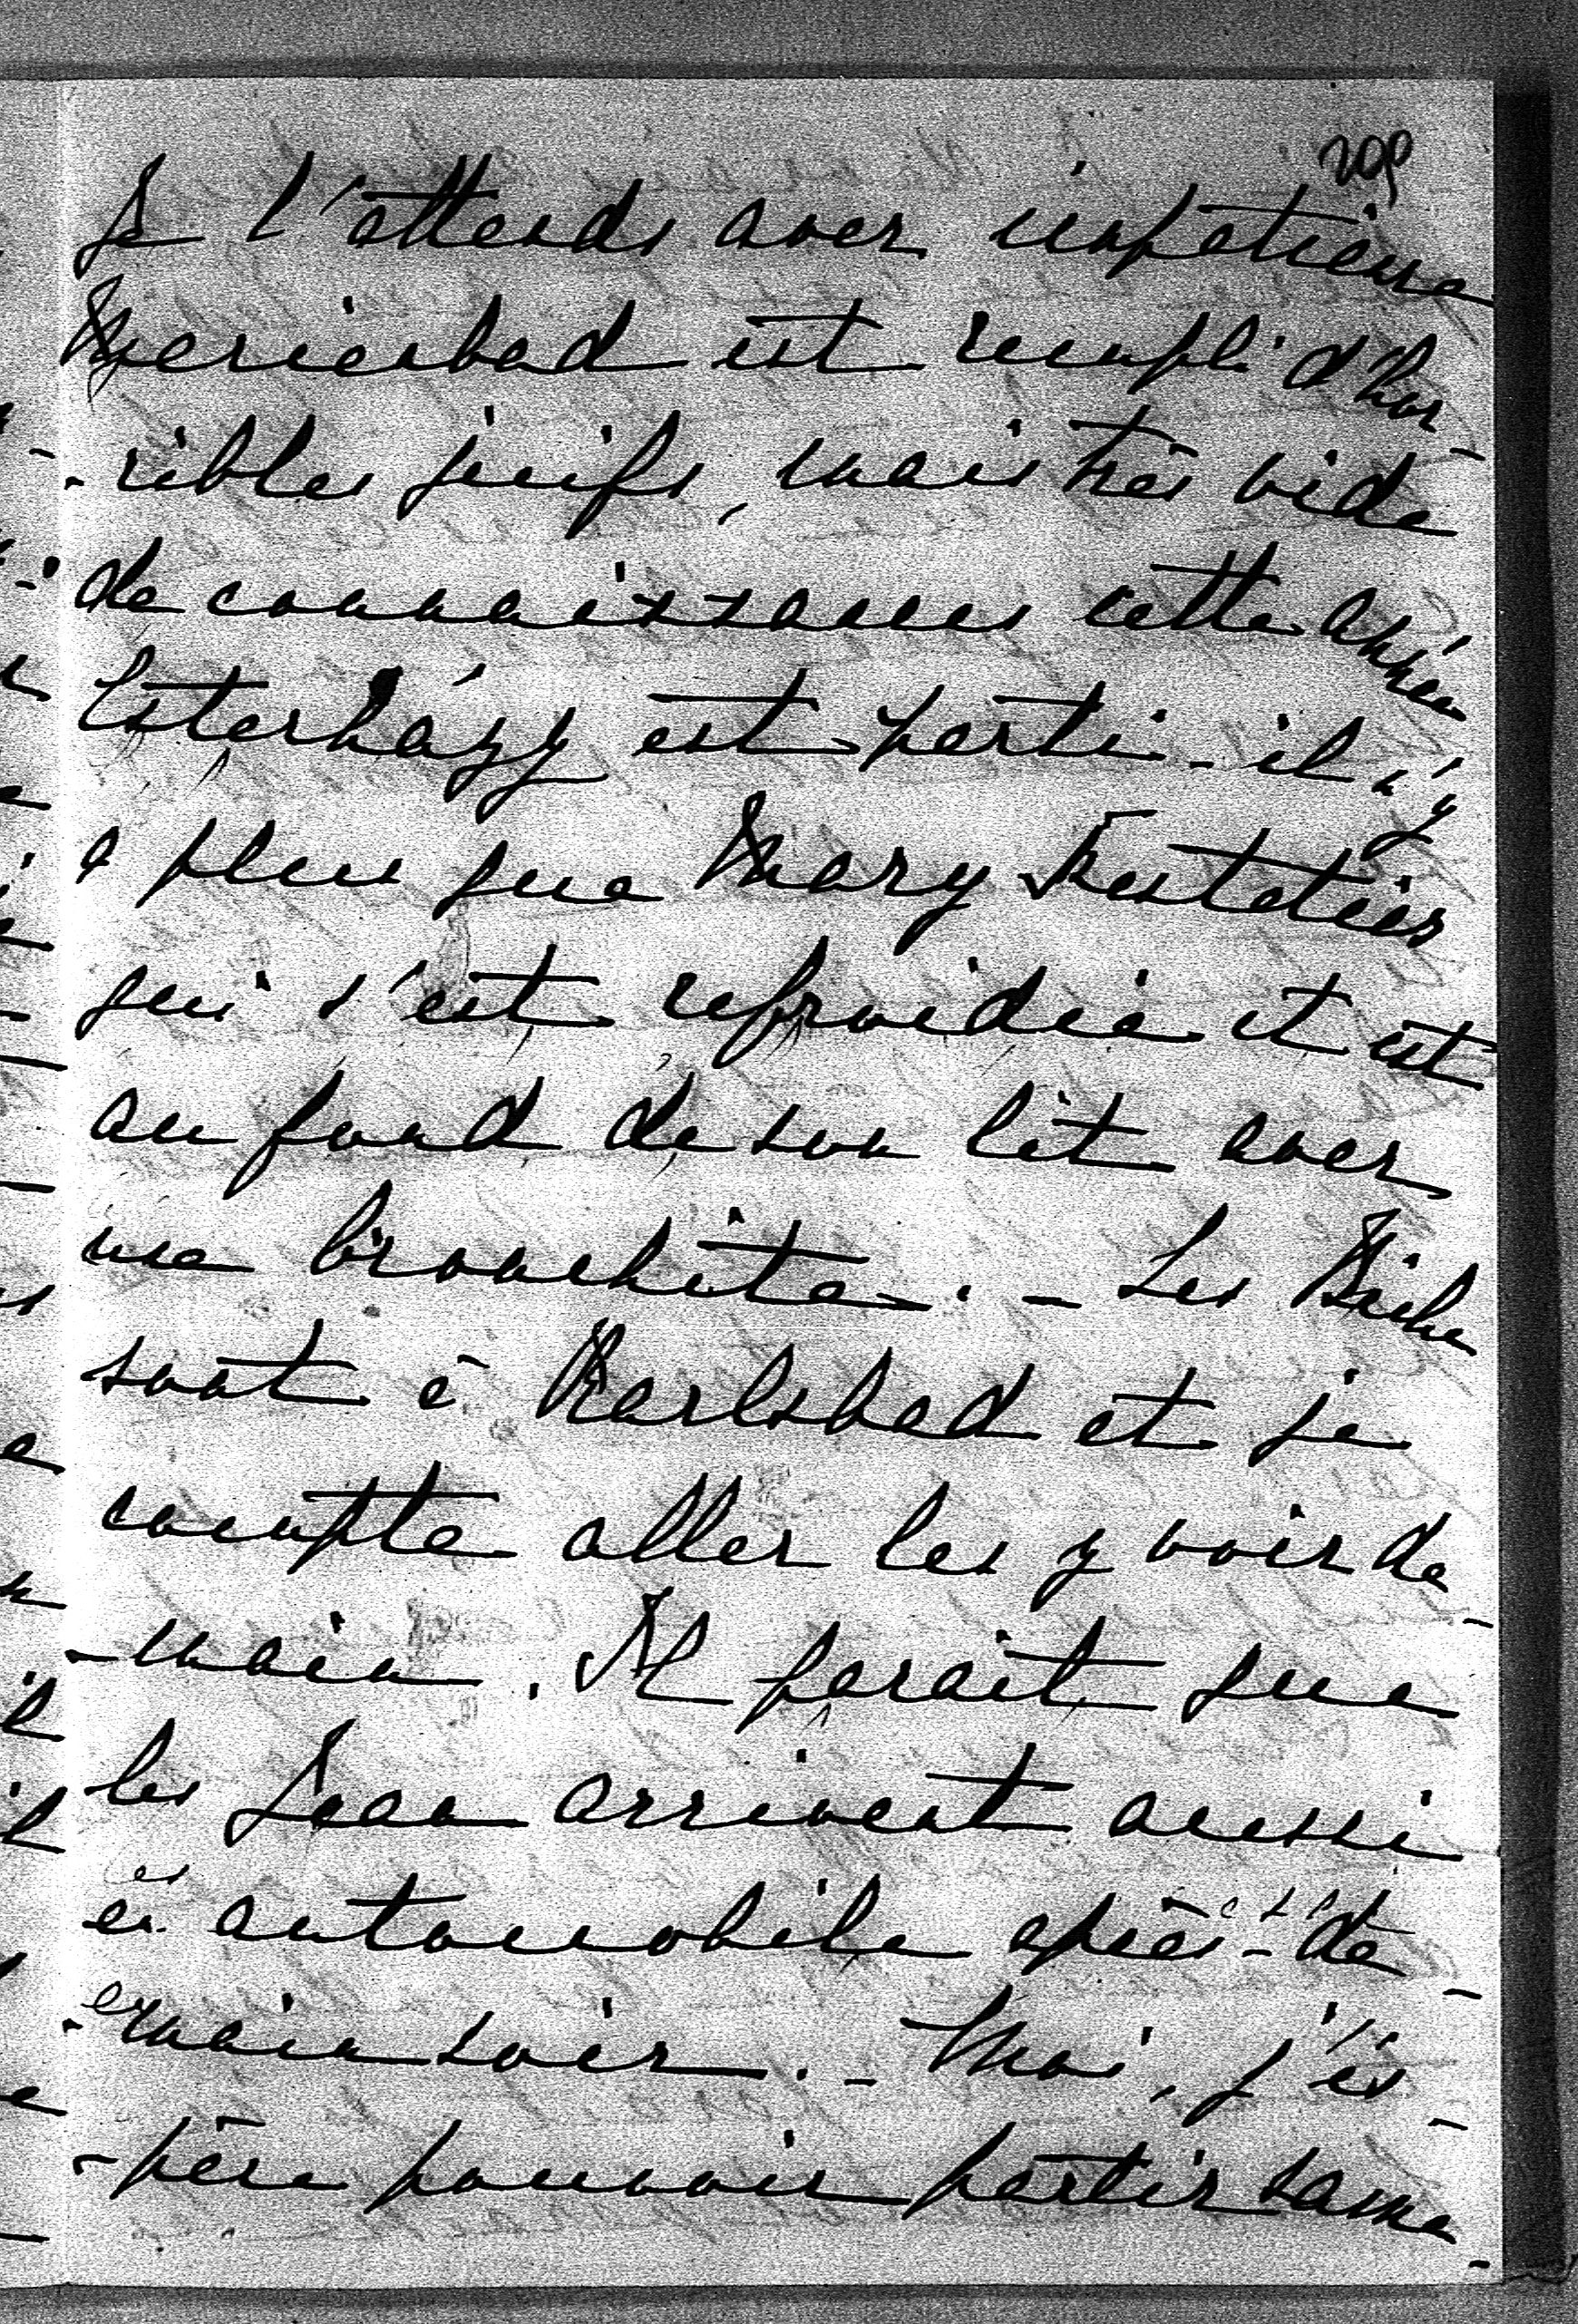 209
Je l'attends avec impatience
Marienbad est rempli d'hor-
-ribles juifs, mais très vide
de connaissances cette année
Esterházy est parti - il n'y
a plus que Mary Festetics
qui s'est refroidie et est
au fond de son lit avec
une bronchite. - Les
sont à Karlsbad et je
compte aller les y voir de-
-main. Il paraît que
les Jean arrivent aussi
en automobile après-de-
-main soir. - Moi, j'es-
-père pouvoir partir same-